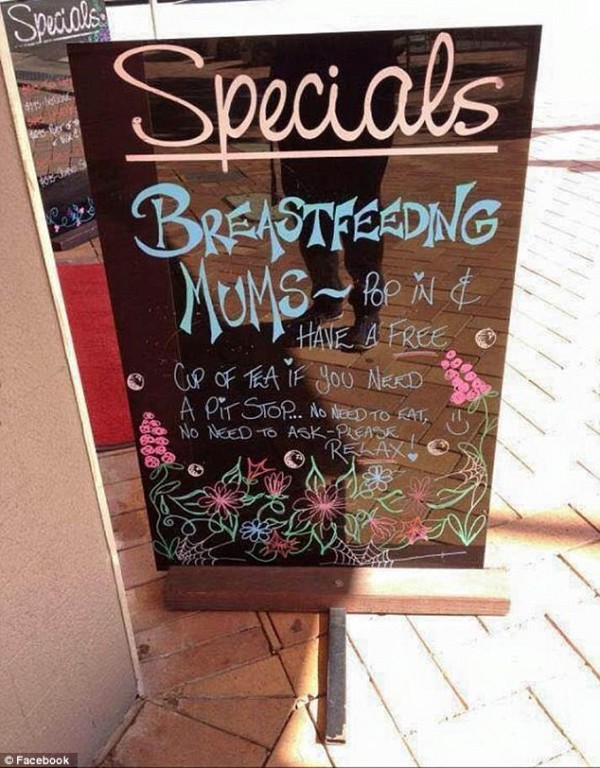 Specials
Specials
BREASTFEEDING
MUMS~ POP IN &
HAVE A FREE
CUP OF TEA IF YOU NEED
A PIT STOP... NO NEED TO EAT,
NO NEED TO ASK-PLEASE
RELAX!
© Facebook